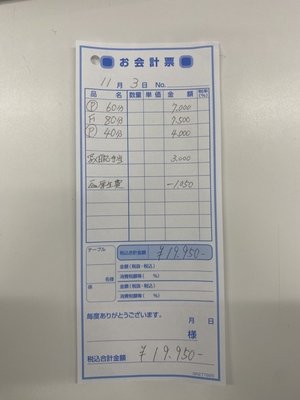 お会計票
11月 3日 No.
品 名 数量 単価 金額 税率(%)
Ⓟ 60分 7,000
80分 7,500
Ⓟ 40分 4,000
手当 3,000
厚生費 -1,050
テーブル 税込合計金額 ¥19,950-
金額(税抜・税込)
名様 消費税額等( %)
係 金額(税抜・税込)
消費税額等( %)
毎度ありがとうございます。 月 日
様
税込合計金額 ¥19,950-